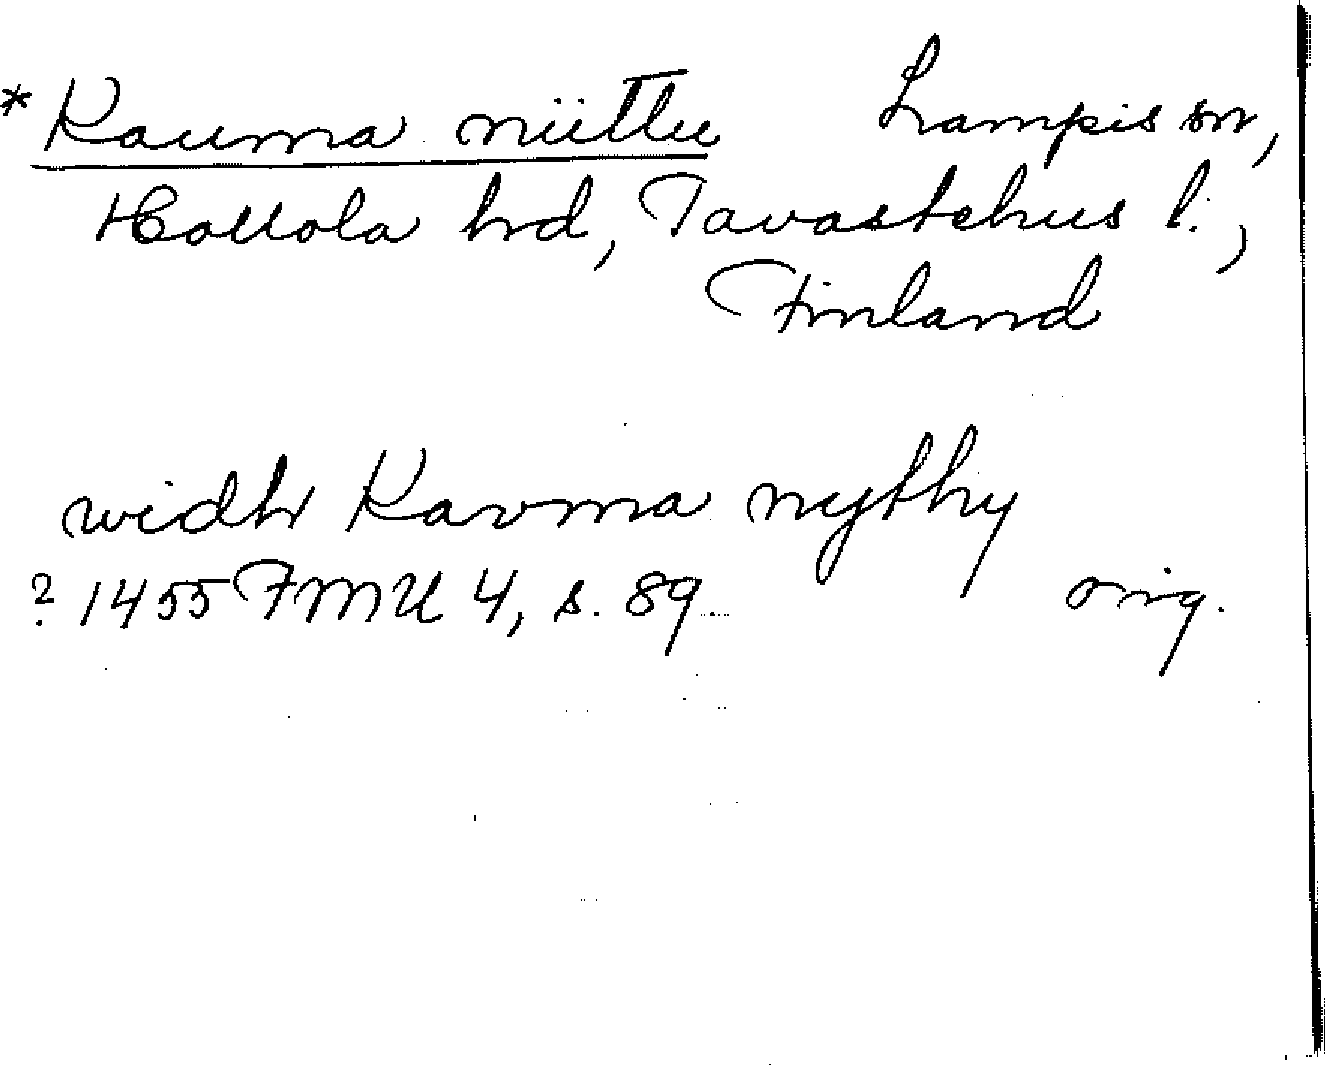 * Rauma niittu Lampis sn,
Hollola hd, Tavastehus l.,
Finland
widh Ravma nythy
? 1455 FMU 4, s. 89 orig.